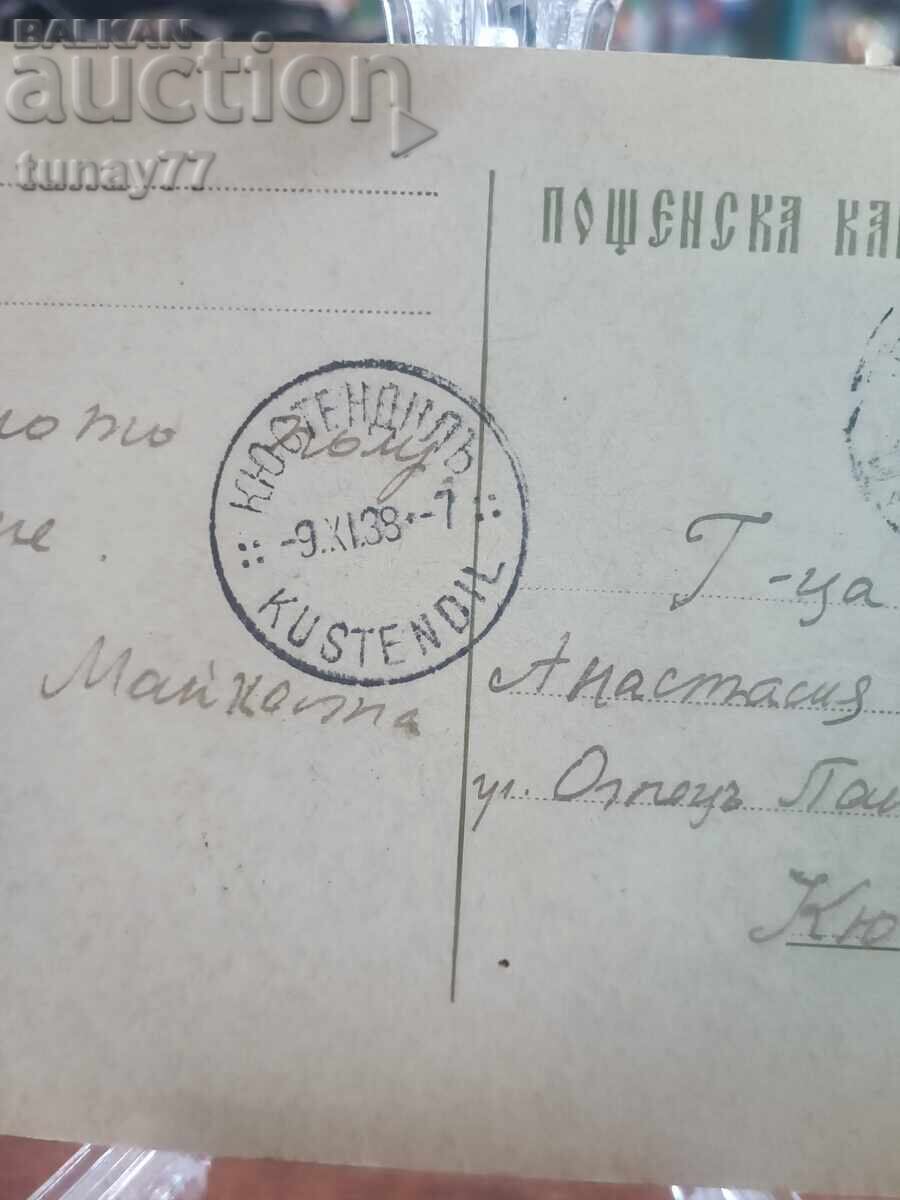 BALKAN
auction
tunay77
ПОЩЕНСКА КА
КЮСТЕНДИЛЪ
-9.XI.38.-7
KUSTENDIL
Майката
Г-ца
Анастасия
ул. Отецъ Паи
Кю